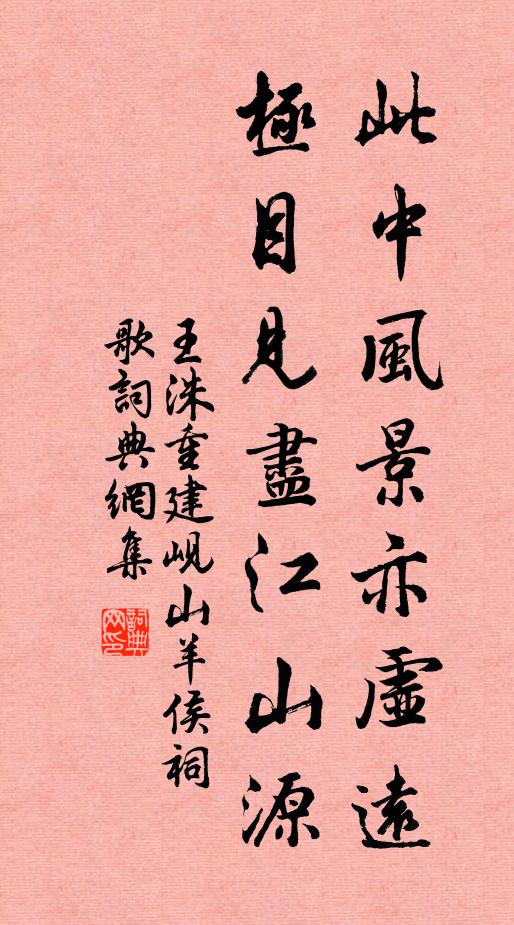 此中風景亦虛遠
極目見盡江山源
王洙重建峴山羊侯祠
歌詞典網集
詞典網印